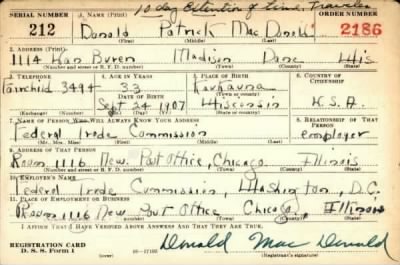 10 day Extention of time. Traveler
SERIAL NUMBER 1. NAME (Print) ORDER NUMBER
212 Donald Patrick Mac Donald 2186
(First) (Middle) (Last)
2. ADDRESS (Print)
1114 Van Buren Madison Dane Wis
(Number and street or R. F. D. number) (Town) (County) (State)
3. TELEPHONE 4. AGE IN YEARS 5. PLACE OF BIRTH 6. COUNTRY OF CITIZENSHIP
Fairchild 3494 33 Kaukauna
DATE OF BIRTH (Town or county)
Sept 24 1907 Wisconsin U.S.A.
(Exchange) (Number) (Mo.) (Day) (Yr.) (State or country)
7. NAME OF PERSON WHO WILL ALWAYS KNOW YOUR ADDRESS 8. RELATIONSHIP OF THAT PERSON
Federal Trade Commission employer
(Mr., Mrs., Miss) (First) (Middle) (Last)
9. ADDRESS OF THAT PERSON
Room 1116 New Post Office, Chicago, Illinois
(Number and street or R. F. D. number) (Town) (County) (State)
10. EMPLOYER'S NAME
Federal Trade Commission, Washington, D.C.
11. PLACE OF EMPLOYMENT OR BUSINESS
Room 1116 New Post Office Chicago Illinois
(Number and street or R. F. D. number) (Town) (County) (State)
I AFFIRM THAT I HAVE VERIFIED ABOVE ANSWERS AND THAT THEY ARE TRUE.
REGISTRATION CARD
D. S. S. Form 1 Donald Mac Donald
(Registrant's signature)